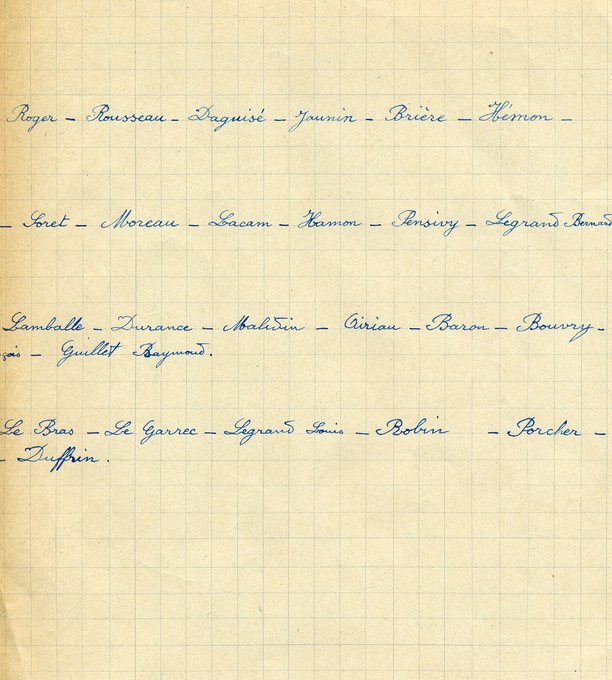 Roger — Rousseau — Daguisé — Jaunin — Brière — Hémon —
— Soret — Moreau — Lacam — Hamon — Pensivy — Legrand Bernard
Lamballe — Durance — Malidin — Airiau — Baron — Bouvry —
çois — Guillet Raymond.
Le Bras — Le Garrec — Legrand Louis — Robin — Porcher —
— Duffrin.